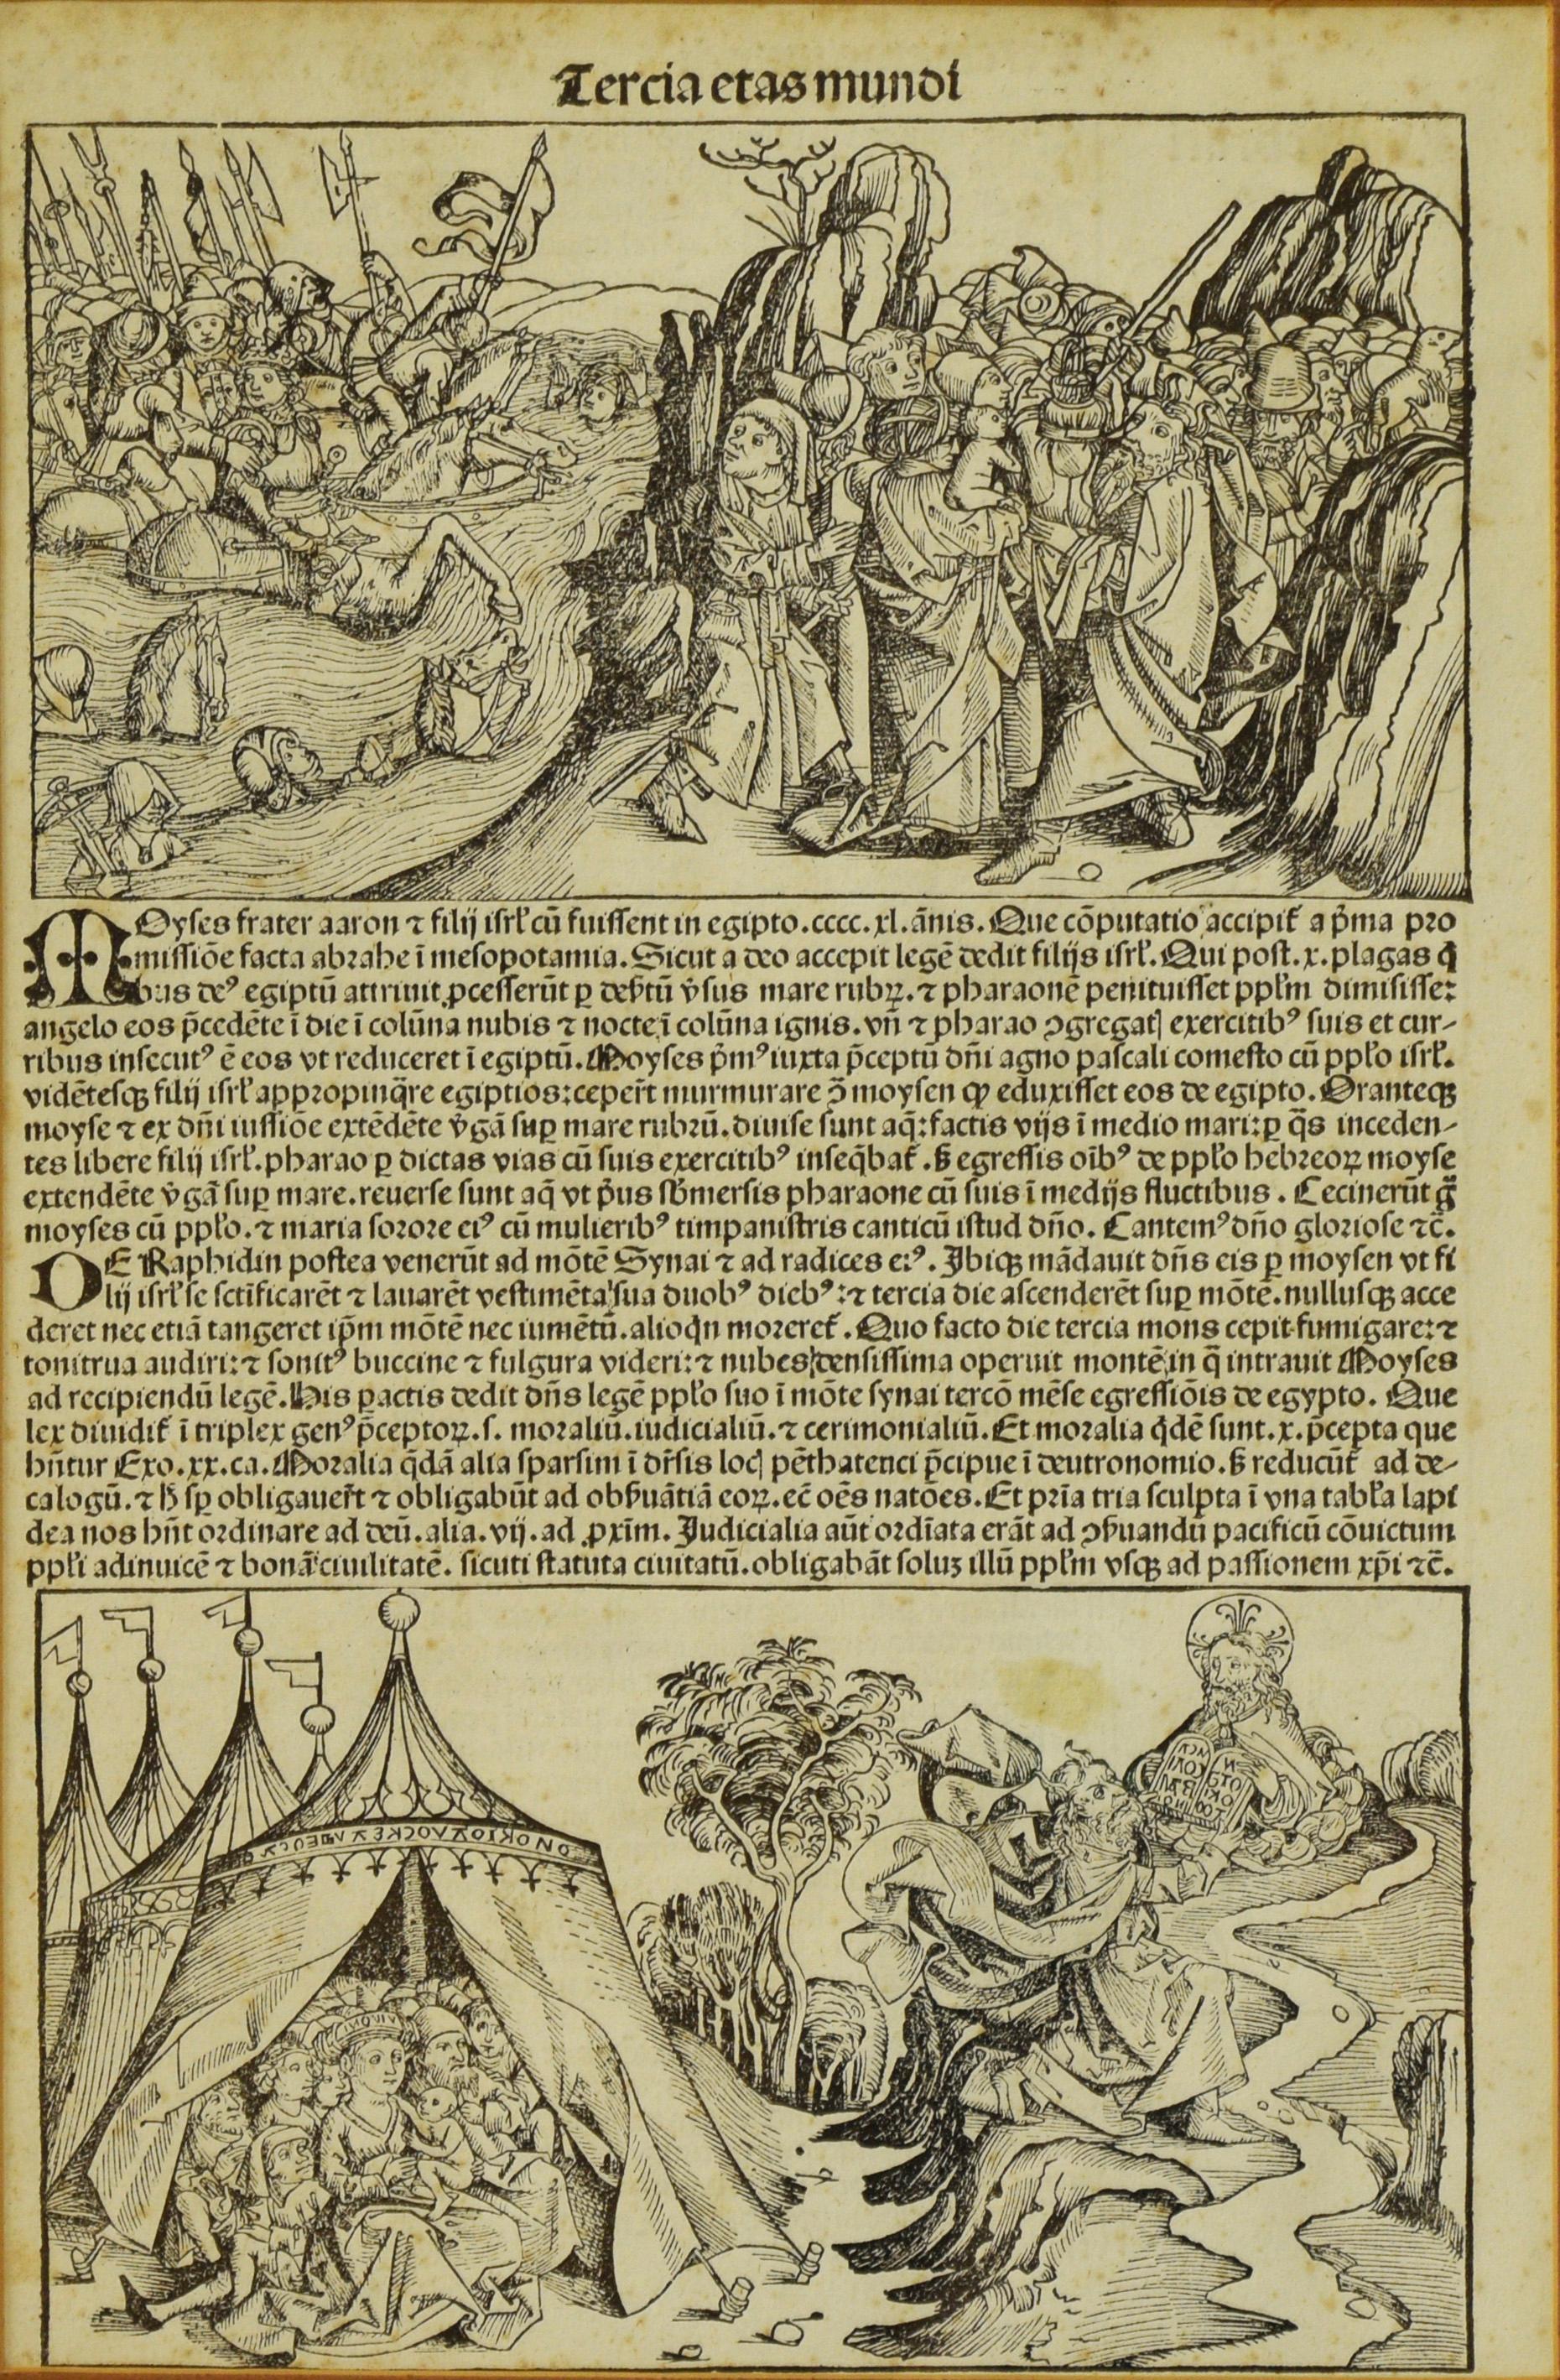 Tercia etas mundi
MOyses frater aaron ⁊ filij isrł cū fuissent in egipto.cccc.xl.ānis. Que cōputatio accipit̉ a p̄ma pro
missiōe facta abrahe ī mesopotamia. Sicut a deo accepit legē dedit filijs isrł. Qui post.x.plagas q̇
bus deꝰ egiptū attriuit ꝓcesserūt ꝑ deẜtū v̉sus mare rubꝝ. ⁊ pharaonē penituisset ppłm dimisisse:
angelo eos p̄cedēte ī die ī colūna nubis ⁊ nocte ī colūna ignis. vñ ⁊ pharao ↄgregatꝭ exercitibꝰ suis et cur-
ribus insecutꝰ ē eos vt reduceret ī egiptū. Moyses p̉mꝰ iuxta p̄ceptū dñi agno pascali comesto cū ppło isrł.
vidētesqꝫ filij isrł appropinq̄re egiptios: ceper̄t murmurare ↄ̄ moysen ꝙ eduxisset eos de egipto. Oranteqꝫ
moyse ⁊ ex dñi iussiōe extēdēte v̉gā suꝑ mare rubrū. diuise sunt aq̄: factis vijs ī medio mari: ꝑ q̄s inceden-
tes libere filij isrł. pharao ꝑ dictas vias cū suis exercitibꝰ inseq̄bat̉. ẞ egressis oībꝰ de ppło hebreoꝝ moyse
extendēte v̉gā suꝑ mare. reuerse sunt aq̄ vt p̉us sb̄mersis pharaone cū suis ī medijs fluctibus. Cecinerūt g̊
moyses cū ppło. ⁊ maria sorore eiꝰ cū mulieribꝰ timpanistris canticū istud dño. Cantemꝰ dño gloriose ⁊c̄.
DE Raphidin postea venerūt ad mōtē Synai ⁊ ad radices eiꝰ. Ibiqꝫ mādauit dñs eis ꝑ moysen vt fi
lij isrł se sctīficarēt ⁊ lauarēt vestimēta sua duobꝰ diebꝰ: ⁊ tercia die ascenderēt suꝑ mōtē. nullusqꝫ acce
deret nec etiā tangeret ip̄m mōtē nec iumētū. alioq̇n moreret̉. Quo facto die tercia mons cepit fumigare: ⁊
tonitrua audiri: ⁊ sonitꝰ buccine ⁊ fulgura videri: ⁊ nubes densissima operuit montē in q̄ intrauit Moyses
ad recipiendū legē. His ꝑactis dedit dñs legē ppło suo ī mōte synai tercō mēse egressiōis de egypto. Que
lex diuidit̉ ī triplex genꝰ p̄ceptoꝝ. s. moraliū. iudicialiū. ⁊ cerimonialiū. Et moralia q̇dē sunt.x.p̄cepta que
hñtur Exo.xx.ca. Moralia q̄dā alia sparsim ī dr̄sis locꝭ pēthateuci p̄cipue ī deutronomio. ẞ reducūt̉ ad de-
calogū. ⁊ h̄ sꝑ obligauer̄t ⁊ obligabūt ad obẜuātiā eoꝝ. ec̄ oēs natōes. Et prīa tria sculpta ī vna tabła lapi
dea nos hñt ordinare ad deū. alia.vij. ad ꝓxīm. Iudicialia aūt ordīata erāt ad ↄẜuandū pacificū cōuictum
ppłi adinuicē ⁊ bonā ciuilitatē. sicuti statuta ciuitatū. obligabāt soluꝫ illū ppłm vsqꝫ ad passionem xp̄i ⁊c̄.